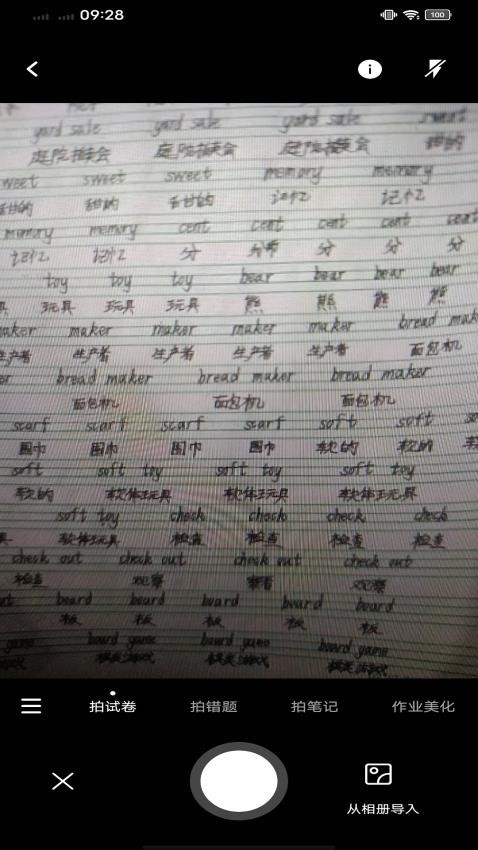 09:28
100
yard sale yard sale yard sale sweet
庭院拍卖会 庭院拍卖会 庭院拍卖会 甜的
sweet sweet sweet memory memory
甜的 甜的 甜的 记忆 记忆
memory memory cent cent cent cent cent
记忆 记忆 分 分币 分 分 分
toy toy toy bear bear bear bear
玩具 玩具 玩具 熊 熊 熊 熊
maker maker maker maker maker bread mak
生产者 生产者 生产者 生产者 生产者 面包机
bread maker bread maker bread maker
面包机 面包机 面包机
scarf scarf scarf scarf soft soft
围巾 围巾 围巾 围巾 软的 软的
soft soft toy soft toy soft toy
软的 软体玩具 软体玩具 软体玩具
soft toy check check check check
软体玩具 检查 检查 检查 检查
check out check out check out check out
检查 观察 察看 观察
board board board board board
板 板 板 板 板
game board game board game board game
棋类游戏 棋类游戏 棋类游戏
拍试卷 拍错题 拍笔记 作业美化
从相册导入